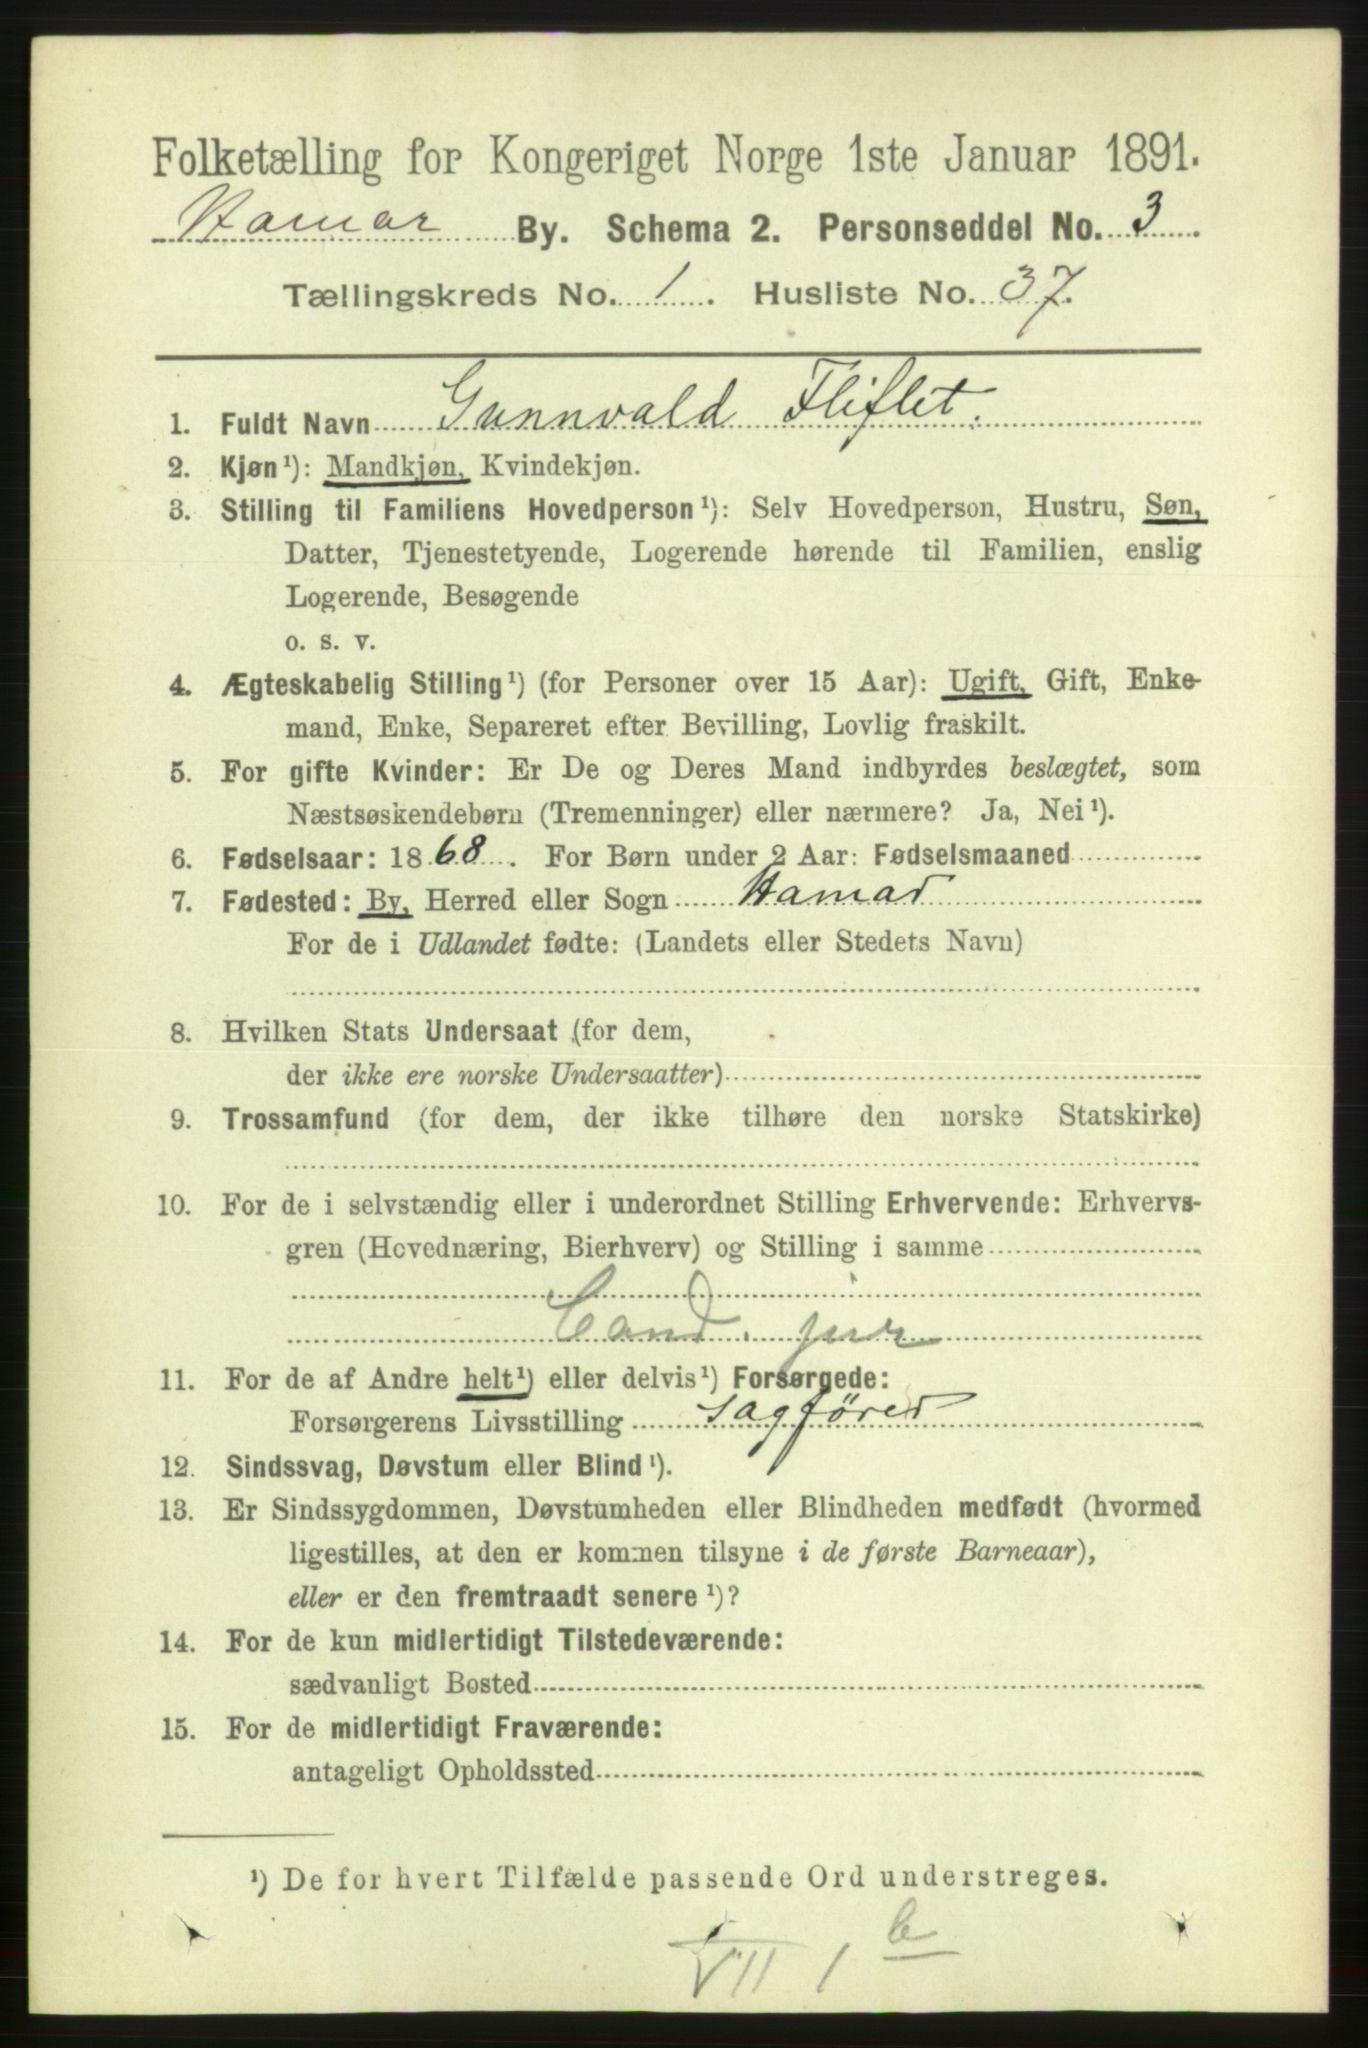 Folketælling for Kongeriget Norge 1ste Januar 1891.
Hamar By. Schema 2. Personseddel No. 3
Tællingskreds No. 1. Husliste No. 37.
1. Fuldt Navn Gunnvald Fliflet.
2. Kjøn¹): Mandkjøn, Kvindekjøn.
3. Stilling til Familiens Hovedperson¹): Selv Hovedperson, Hustru, Søn,
Datter, Tjenestetyende, Logerende hørende til Familien, enslig
Logerende, Besøgende
o. s. v.
4. Ægteskabelig Stilling¹) (for Personer over 15 Aar): Ugift, Gift, Enke-
mand, Enke, Separeret efter Bevilling, Lovlig fraskilt.
5. For gifte Kvinder: Er De og Deres Mand indbyrdes beslægtet, som
Næstsøskendebørn (Tremenninger) eller nærmere? Ja, Nei¹).
6. Fødselsaar: 1868. For Børn under 2 Aar: Fødselsmaaned
7. Fødested: By, Herred eller Sogn Hamar
For de i Udlandet fødte: (Landets eller Stedets Navn)
8. Hvilken Stats Undersaat (for dem,
der ikke ere norske Undersaatter)
9. Trossamfund (for dem, der ikke tilhøre den norske Statskirke)
10. For de i selvstændig eller i underordnet Stilling Erhvervende: Erhvervs-
gren (Hovednæring, Bierhverv) og Stilling i samme
Cand. jur
11. For de af Andre helt¹) eller delvis¹) Forsørgede:
Forsørgerens Livsstilling Sagfører
12. Sindssvag, Døvstum eller Blind¹).
13. Er Sindssygdommen, Døvstumheden eller Blindheden medfødt (hvormed
ligestilles, at den er kommen tilsyne i de første Barneaar),
eller er den fremtraadt senere¹)?
14. For de kun midlertidigt Tilstedeværende:
sædvanligt Bosted
15. For de midlertidigt Fraværende:
antageligt Opholdssted
¹) De for hvert Tilfælde passende Ord understreges.
VII 1 b